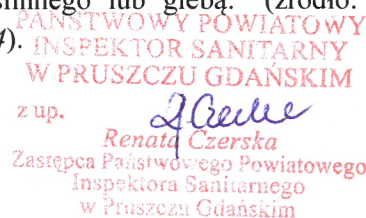 ślinnego lub glebą. (źródło:
PAŃSTWOWY POWIATOWY
).
INSPEKTOR SANITARNY
W PRUSZCZU GDAŃSKIM
z up.
Renata Czerska
Zastępca Państwowego Powiatowego
Inspektora Sanitarnego
w Pruszczu Gdańskim